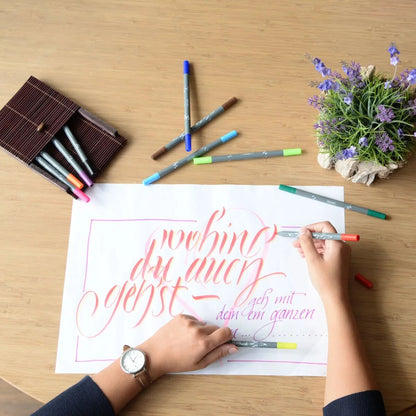 wohing
du auch
gehst –
geh mit
dein em ganzen